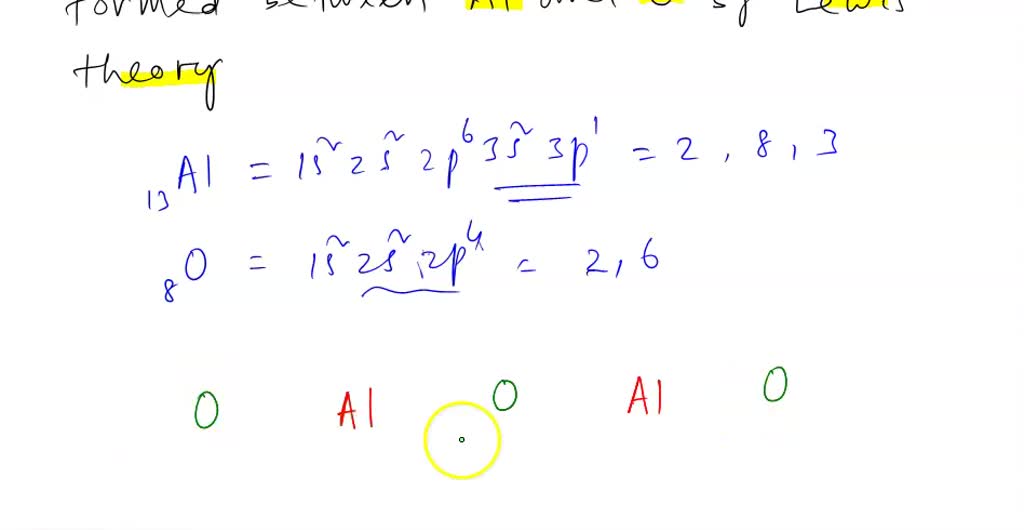 formed between Al and O by Lewis
theory
₁₃Al = 1s² 2s² 2p⁶ 3s² 3p¹ = 2, 8, 3
₈O = 1s² 2s² 2p⁴ = 2, 6
O Al O Al O